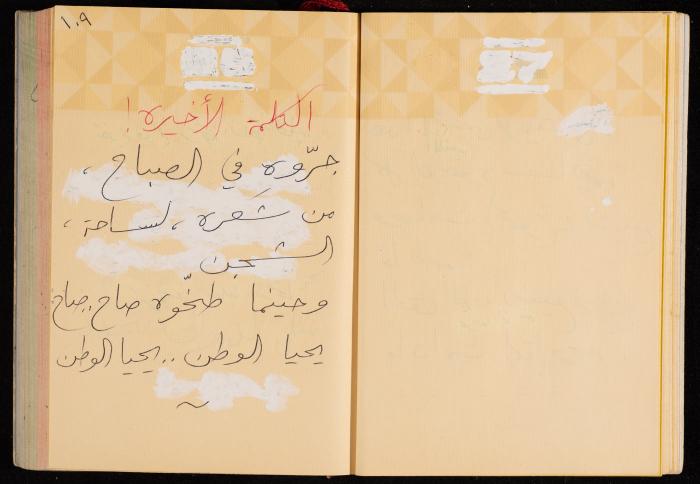 ١٠٩
الكلمة الأخيره!
جرّوه في الصباح،
من شَعره، لساحة،
الشجن
وحينما طخّوه صاح.. صاح
يحيا الوطن.. يحيا الوطن
27